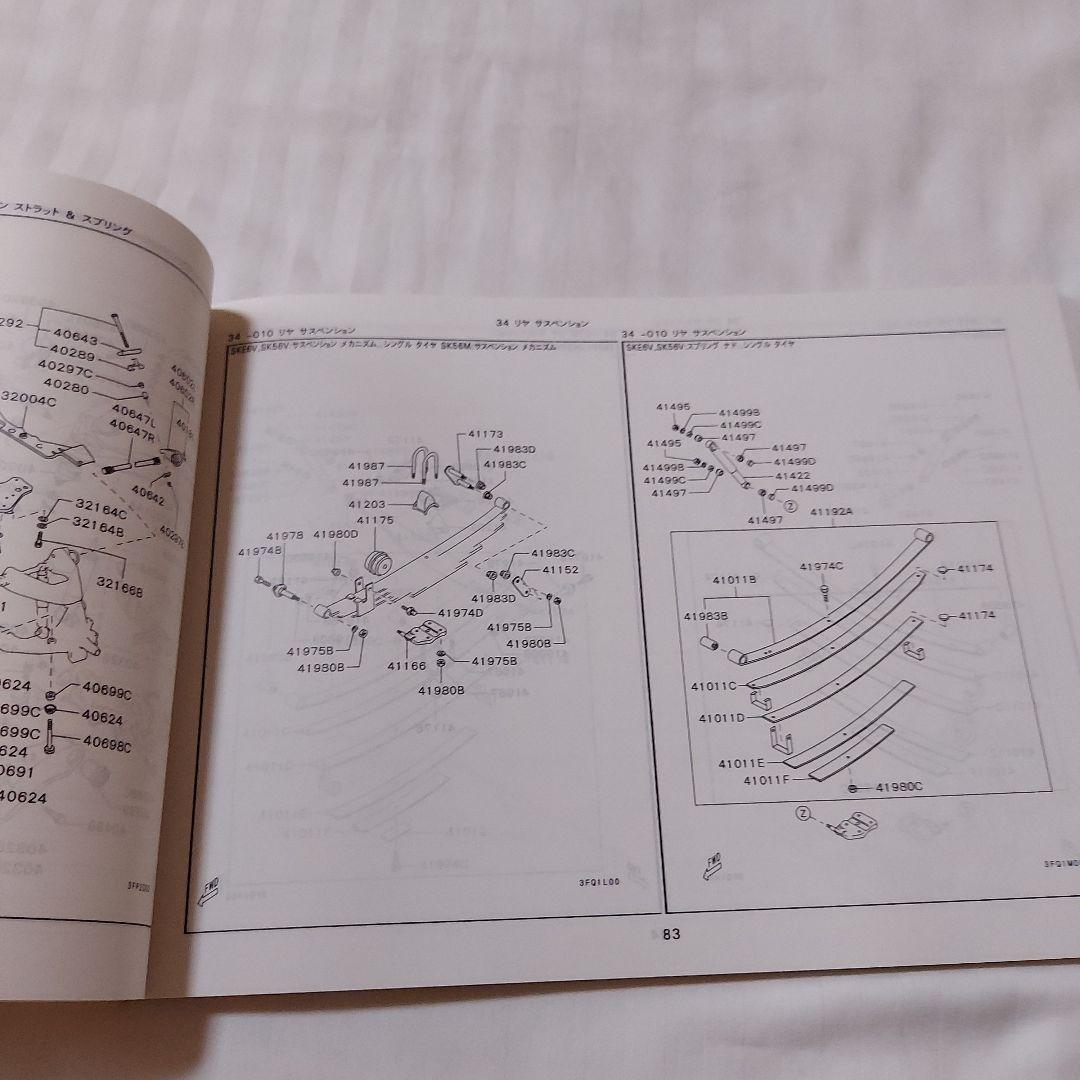 ン ストラット & スプリング
40643
40289
40297C
40280
32004C
40647L
40647R
40642
32164C
32164B
32166B
40699C
40624
40698C
40624
34 リヤ サスペンション
34 -010 リヤ サスペンション
SKE6V,SK56V.サスペンション メカニズム..シングル タイヤ SK56M.サスペンション メカニズム
41173
41983D
41983C
41987
41987
41203
41175
41978
41980D
41974B
41983C
41152
41983D
41974D
41975B
41980B
41975B
41980B
41166
41975B
41980B
FWD
3FQ1L00
34 -010 リヤ サスペンション
SKE6V,SK56V スプリング ナド シングル タイヤ
41495
41499B
41499C
41497
41495
41497
41499B
41499D
41499C
41422
41497
41499D
Z
41497
41192A
41974C
41174
41011B
41174
41983B
41011C
41011D
41011E
41011F
41980C
Z
FWD
83